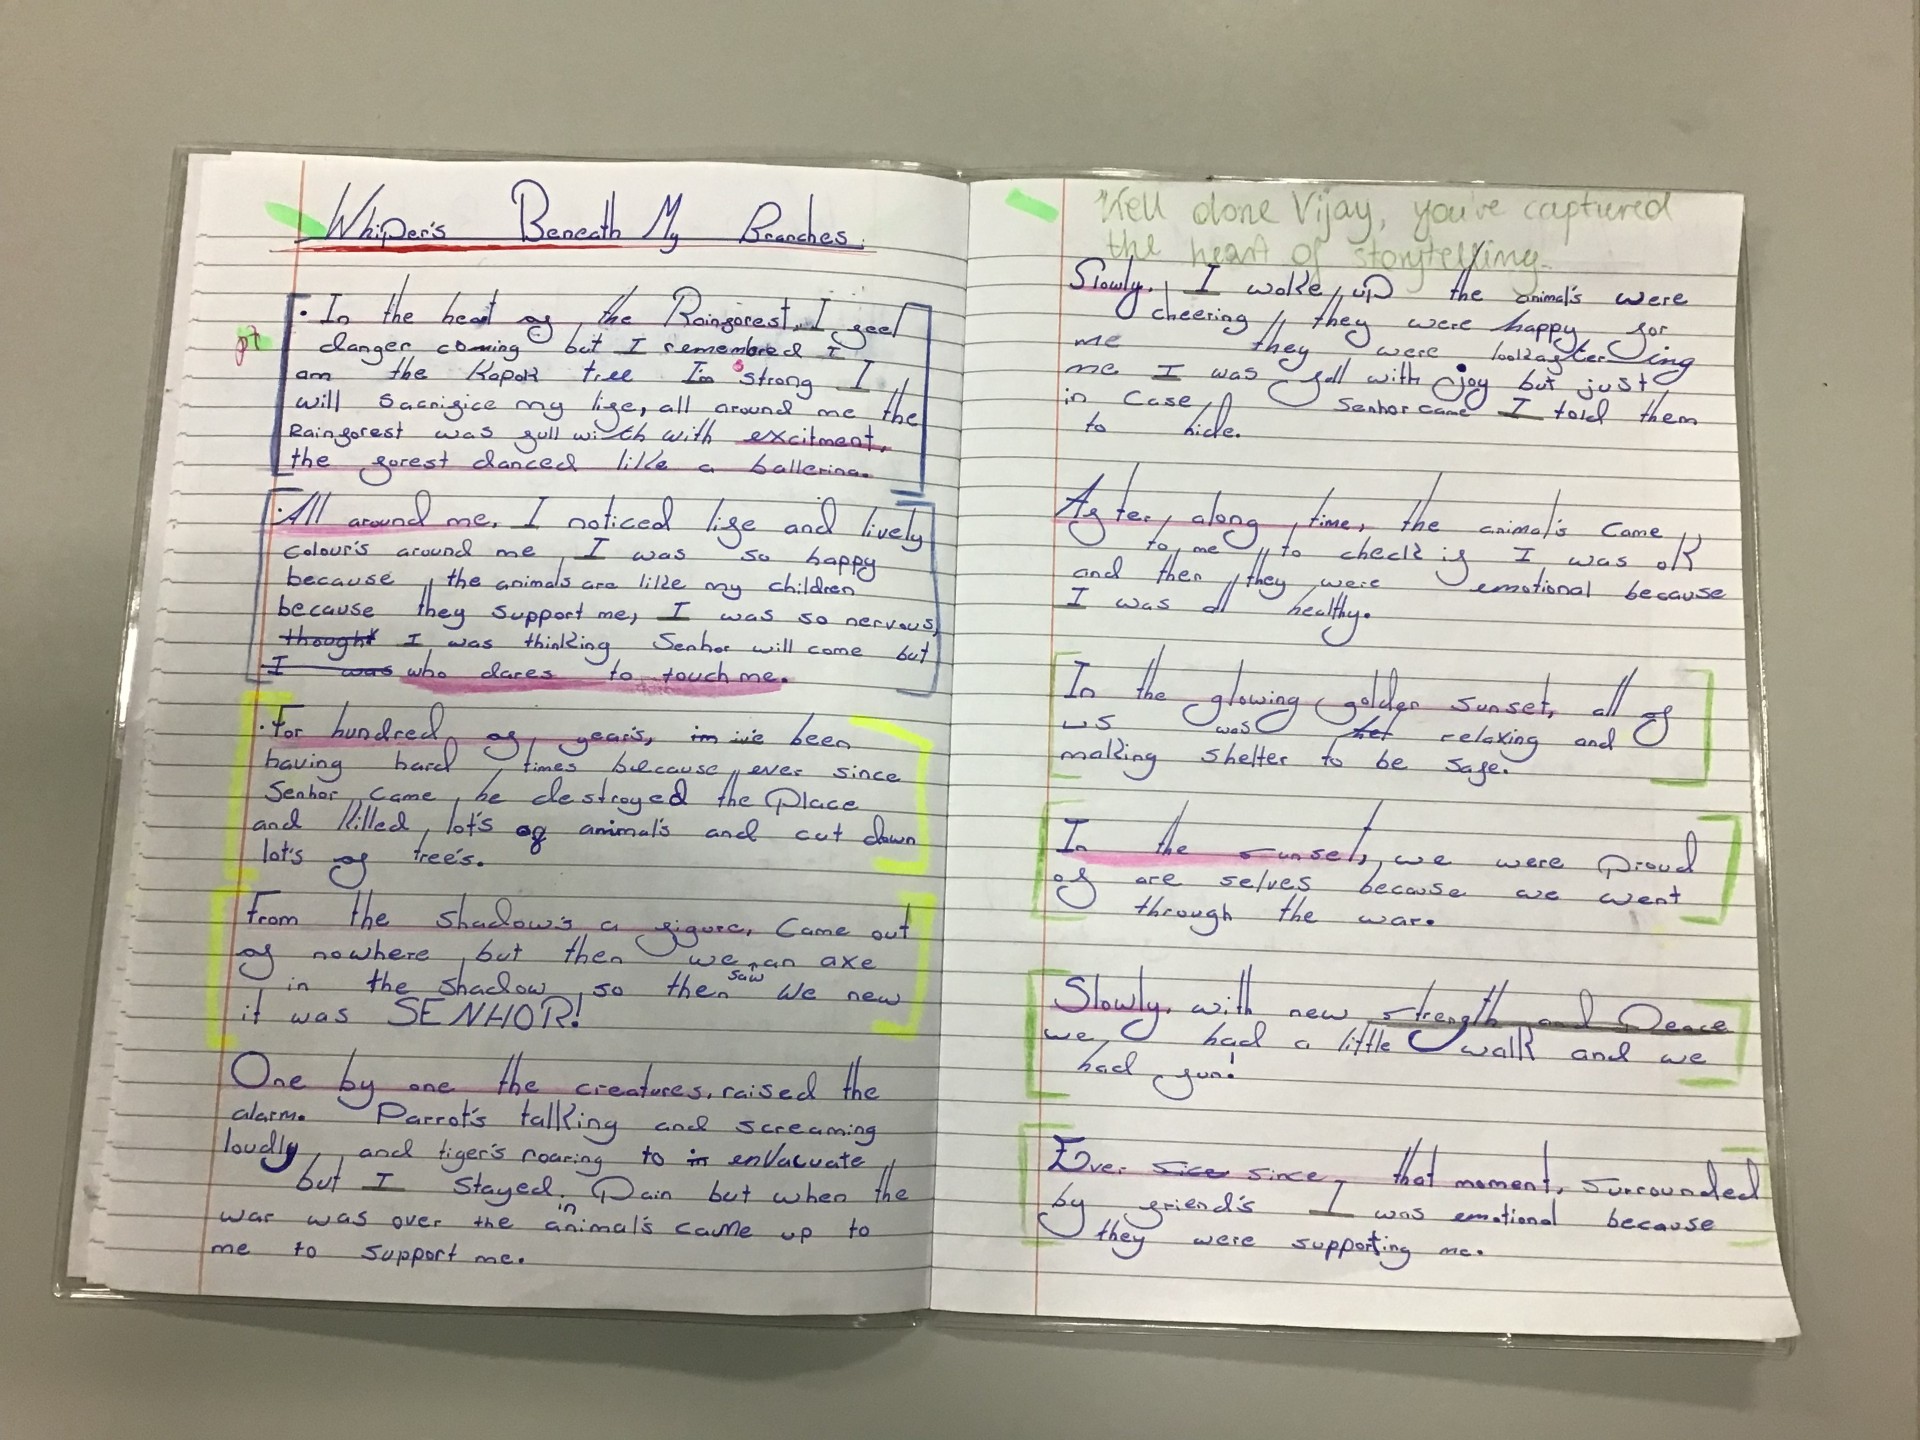 Whiper's Beneath My Branches.
• In the heat of the Rainforest, I feel
pt
danger coming but I remembred I
am the Kapok tree Im strong I
will sacrifice my life, all around me the
Rainforest was full with with excitment,
the forest danced like a ballerina.
• All around me, I noticed life and lively
colour's around me I was so happy
because the animals are like my children
because they support me, I was so nervous,
thought I was thinking Senhor will come but
I was who dares to touch me.
• For hundred of year's, im ive been
having hard times because ever since
Senhor came he destroyed the place
and killed lot's of animal's and cut down
lot's of tree's.
From the shadow's a figure, Came out
of nowhere but then we saw an axe
in the shadow so then We new
it was SENHOR!
One by one the creatures, raised the
alarm. Parrot's talking and screaming
loudly, and tiger's roaring to in envacuate
but I stayed in Pain but when the
war was over the animal's came up to
me to support me.
Well done Vijay, you've captured
the heart of storytelling.
Slowly, I woke up the animal's were
cheering they were happy for
me they were lookafter ing
me I was full with joy but just
in case Senhor came I told them
to hide.
After along time, the animal's Came
to me to check if I was ok
and then they were emotional because
I was all healthy.
In the glowing golden sunset, all of
us was relaxing and
making shelter to be safe.
In the sunset, we were proud
of are selves because we went
through the war.
Slowly, with new strength and Peace
we had a little walk and we
had fun!
Ever sice since that moment, surrounded
by friend's I was emotional because
they were supporting me.